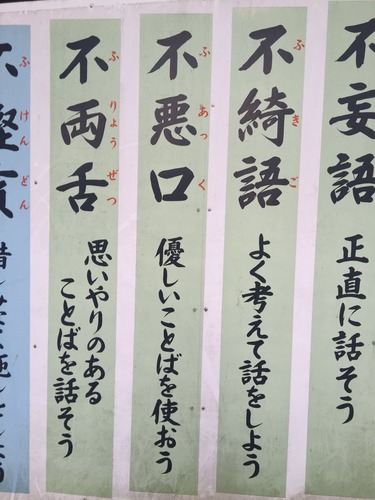 不妄語
正直に話そう
不綺語
ふきご
よく考えて話をしよう
不悪口
ふあっく
優しいことばを使おう
不両舌
ふりょうぜつ
思いやりのある
ことばを話そう
不慳貪
ふけんどん